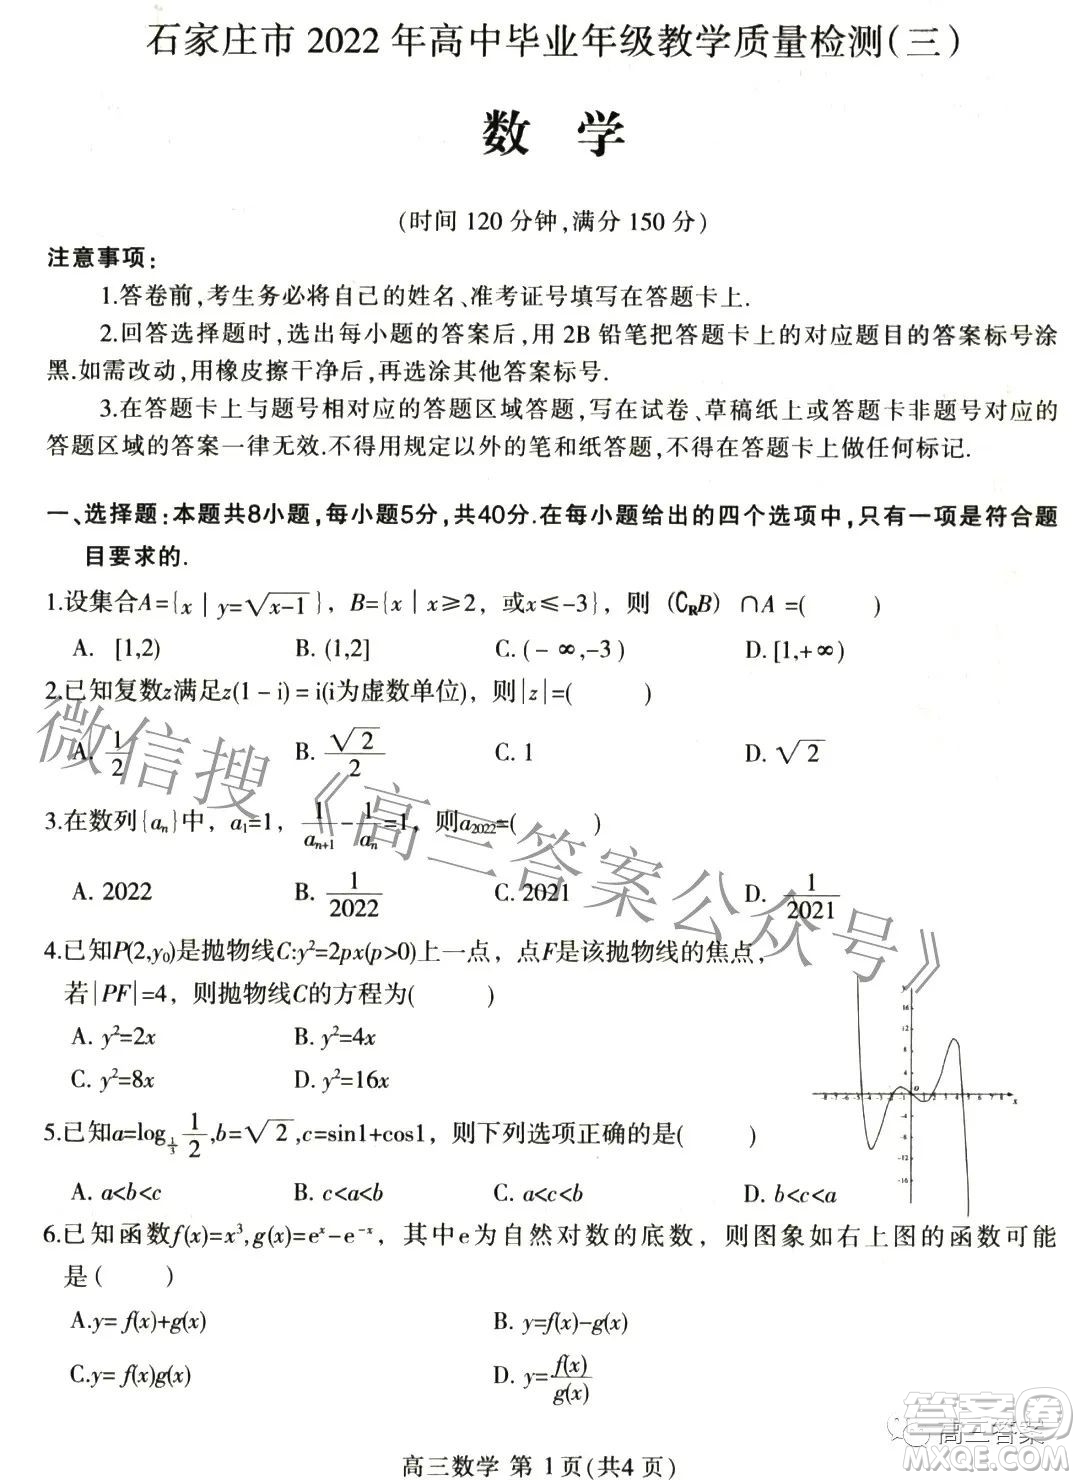 石家庄市 2022 年高中毕业年级教学质量检测(三)
数 学
(时间 120 分钟,满分 150 分)
注意事项:
1.答卷前,考生务必将自己的姓名、准考证号填写在答题卡上.
2.回答选择题时,选出每小题的答案后,用 2B 铅笔把答题卡上的对应题目的答案标号涂
黑.如需改动,用橡皮擦干净后,再选涂其他答案标号.
3.在答题卡上与题号相对应的答题区域答题,写在试卷、草稿纸上或答题卡非题号对应的
答题区域的答案一律无效.不得用规定以外的笔和纸答题,不得在答题卡上做任何标记.
一、选择题:本题共8小题,每小题5分,共40分.在每小题给出的四个选项中,只有一项是符合题
目要求的.
1.设集合A={x | y=√(x-1)}, B={x | x≥2, 或x≤-3}, 则 (∁RB) ∩A =( )
A. [1,2) B. (1,2] C. (-∞,-3) D. [1,+∞)
2.已知复数z满足z(1-i)=i(i为虚数单位), 则|z|=( )
A. 1/2 B. √2/2 C. 1 D. √2
3.在数列{aₙ}中, a₁=1, 1/aₙ₊₁-1/aₙ=1, 则a₂₀₂₂=( )
A. 2022 B. 1/2022 C. 2021 D. 1/2021
4.已知P(2,y₀)是抛物线C:y²=2px(p>0)上一点, 点F是该抛物线的焦点,
若|PF|=4, 则抛物线C的方程为( )
A. y²=2x B. y²=4x
C. y²=8x D. y²=16x
y
16
12
8
4
-8 -7 -6 -5 -4 -3 -2 -1 o 1 2 3 4 5 6 7 8 x
-4
-8
-12
-16
5.已知a=log_(1/3) 1/2, b=√2, c=sin1+cos1, 则下列选项正确的是( )
A. a<b<c B. c<a<b C. a<c<b D. b<c<a
6.已知函数f(x)=x³, g(x)=eˣ-e⁻ˣ, 其中e为自然对数的底数, 则图象如右上图的函数可能
是( )
A.y= f(x)+g(x) B. y=f(x)-g(x)
C.y= f(x)g(x) D. y=f(x)/g(x)
高三数学 第 1 页(共4 页)
微信搜《高三答案公众号》
高三答案
答案圈
MXQE.COM